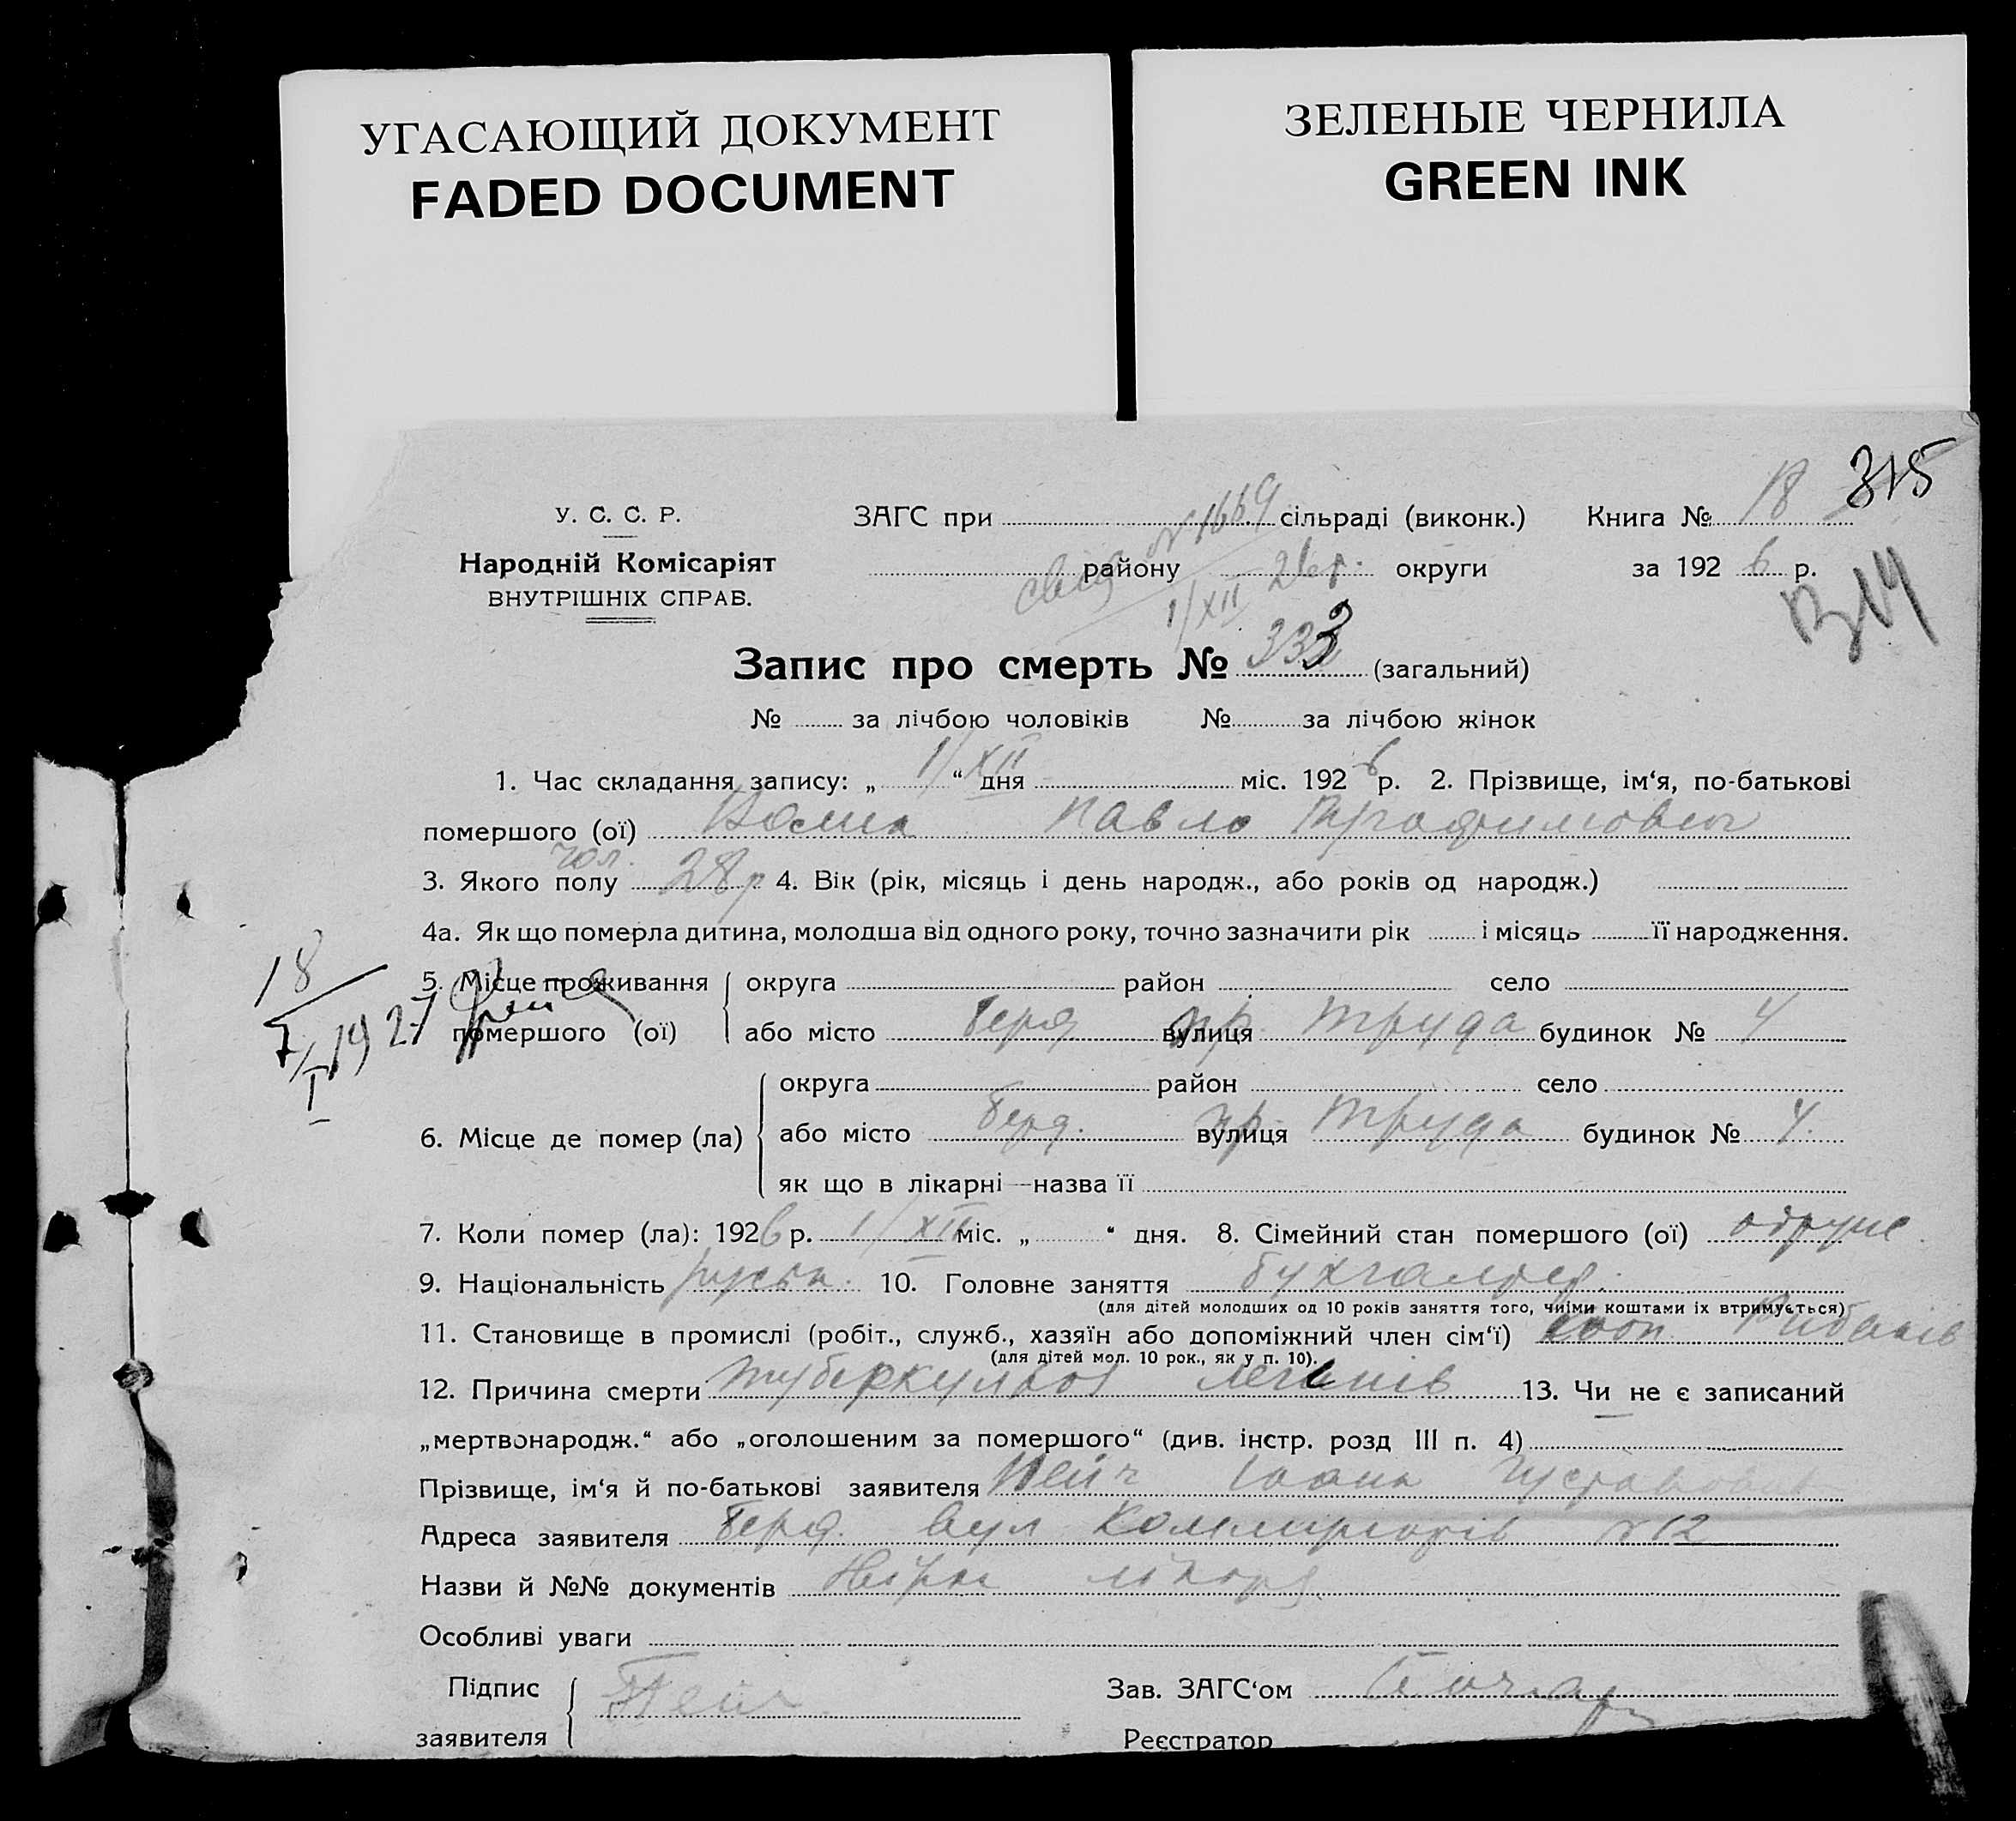 УГАСАЮЩИЙ ДОКУМЕНТ
FADED DOCUMENT
ЗЕЛЕНЫЕ ЧЕРНИЛА
GREEN INK
315
У. С. С. Р.
Народній Комісаріят
ВНУТРІШНІХ СПРАВ.
ЗАГС при сільраді (виконк.) Книга № 18
№ 1669
району округи за 192 6 р.
1/XII 26 р.
Запис про смерть № 333 (загальний)
№ за лічбою чоловіків № за лічбою жінок
1. Час складання запису: „ 1/XII “ дня міс. 192 6 р. 2. Прізвище, ім‘я, по-батькові
помершого (ої) Павло
чол.
3. Якого полу 28 р 4. Вік (рік, місяць і день народж., або років од народж.)
4а. Як що померла дитина, молодша від одного року, точно зазначити рік і місяць її народження.
5. Місце проживання округа район село
помершого (ої) або місто Берд. вулиця пр. Труда будинок № 4
18
7/I 1927
округа район село
6. Місце де помер (ла) або місто Берд. вулиця пр. Труда будинок № 4.
як що в лікарні—назва її
7. Коли помер (ла): 192 6 р. 1/XII міс. „ “ дня. 8. Сімейний стан помершого (ої) одруже.
9. Національність 10. Головне заняття бухгалтер.
(для дітей молодших од 10 років заняття того, чиїми коштами їх втримується)
11. Становище в промислі (робіт., служб., хазяїн або допоміжний член сім‘ї) кооп.
(для дітей мол. 10 рок., як у п. 10).
12. Причина смерти туберкульоз легенів 13. Чи не є записаний
„мертвонародж.“ або „оголошеним за помершого“ (див. інстр. розд III п. 4)
Прізвище, ім‘я й по-батькові заявителя
Адреса заявителя Берд. вул № 12
Назви й №№ документів
Особливі уваги
Підпис
заявителя
Зав. ЗАГС‘ом
Реєстратор